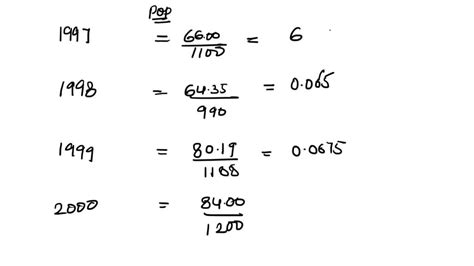 Pop
1997 = 66.00/1100 = 6
1998 = 64.35/990 = 0.065
1999 = 80.19/1188 = 0.0675
2000 = 84.00/1200